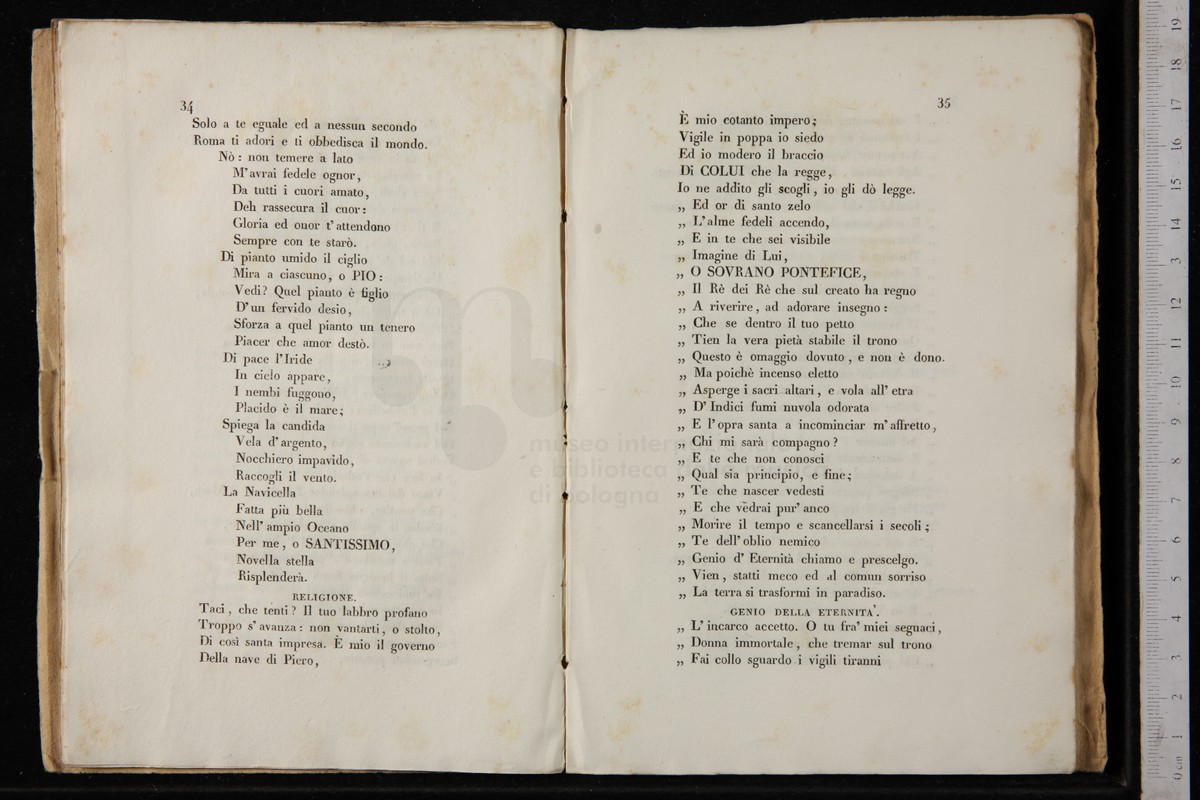 34
Solo a te eguale ed a nessun secondo
Roma ti adori e ti obbedisca il mondo.
Nò : non temere a lato
M' avrai fedele ognor,
Da tutti i cuori amato,
Deh rassecura il cuor :
Gloria ed onor t' attendono
Sempre con te starò.
Di pianto umido il ciglio
Mira a ciascuno, o PIO :
Vedi? Quel pianto è figlio
D' un fervido desio,
Sforza a quel pianto un tenero
Piacer che amor destò.
Di pace l' Iride
In cielo appare,
I nembi fuggono,
Placido è il mare;
Spiega la candida
Vela d' argento,
Nocchiero impavido,
Raccogli il vento.
La Navicella
Fatta più bella
Nell' ampio Oceano
Per me, o SANTISSIMO,
Novella stella
Risplenderà.
RELIGIONE.
Taci, che tenti? Il tuo labbro profano
Troppo s' avanza : non vantarti, o stolto,
Di così santa impresa. È mio il governo
Della nave di Piero,
35
È mio cotanto impero;
Vigile in poppa io siedo
Ed io modero il braccio
Di COLUI che la regge,
Io ne addito gli scogli, io gli dò legge.
„ Ed or di santo zelo
„ L' alme fedeli accendo,
„ E in te che sei visibile
„ Imagine di Lui,
„ O SOVRANO PONTEFICE,
„ Il Rè dei Rè che sul creato ha regno
„ A riverire, ad adorare insegno :
„ Che se dentro il tuo petto
„ Tien la vera pietà stabile il trono
„ Questo è omaggio dovuto, e non è dono.
„ Ma poichè incenso eletto
„ Asperge i sacri altari, e vola all' etra
„ D' Indici fumi nuvola odorata
„ E l' opra santa a incominciar m' affretto,
„ Chi mi sarà compagno?
„ E te che non conosci
„ Qual sia principio, e fine;
„ Te che nascer vedesti
„ E che vedrai pur' anco
„ Morire il tempo e scancellarsi i secoli;
„ Te dell' oblio nemico
„ Genio d' Eternità chiamo e prescelgo.
„ Vien, statti meco ed al comun sorriso
„ La terra si trasformi in paradiso.
GENIO DELLA ETERNITA'.
„ L' incarco accetto. O tu fra' miei seguaci,
„ Donna immortale, che tremar sul trono
„ Fai collo sguardo i vigili tiranni
museo inter
e biblioteca della musica
di bologna
0 cm 1 2 3 4 5 6 7 8 9 10 11 12 13 14 15 16 17 18 19